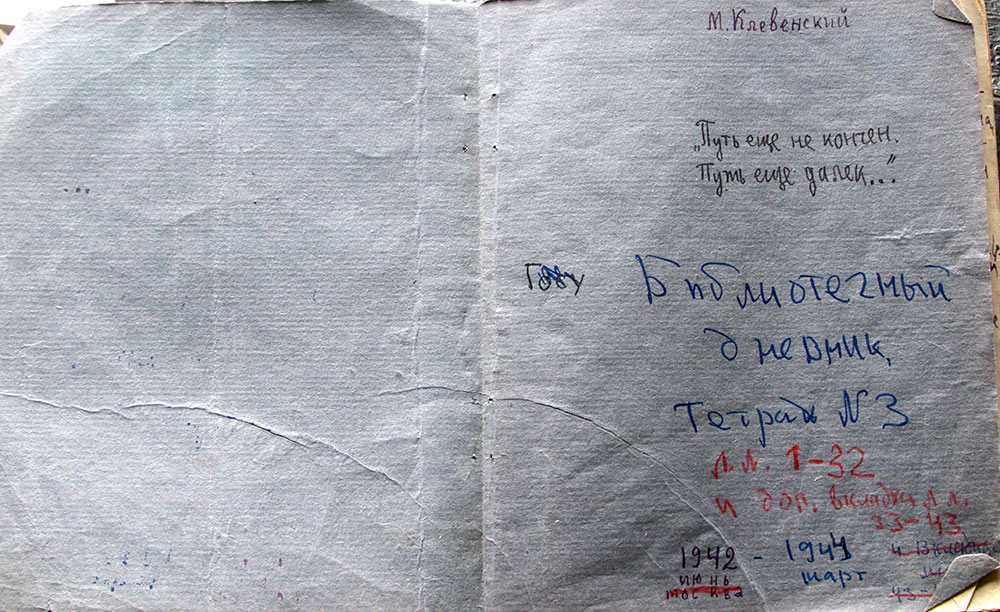 М. Клевенский
„Путь еще не кончен.
Путь еще далек..."
Библиотечный
дневник,
тетрадь N 3
л.л. 1-32
и доп. вкладка л.л.
33-43
1942 - 1944
июнь март
москва